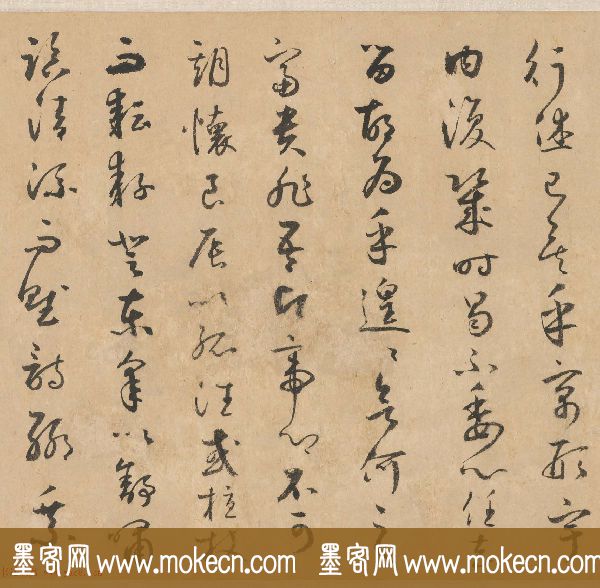 行休已矣乎寓形宇
内復幾時曷不委心任去
留胡為乎遑〻欲何之
富貴非吾願帝鄉不可
期懷良辰以孤往或植杖
而耘耔登東皋以舒嘯
臨清流而賦詩聊乘
墨客网 www.mokecn.com 墨客网 www.mokecn.com